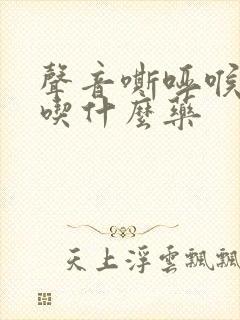 聲音嘶啞喉
喫什麼藥
天上浮雲飄飄